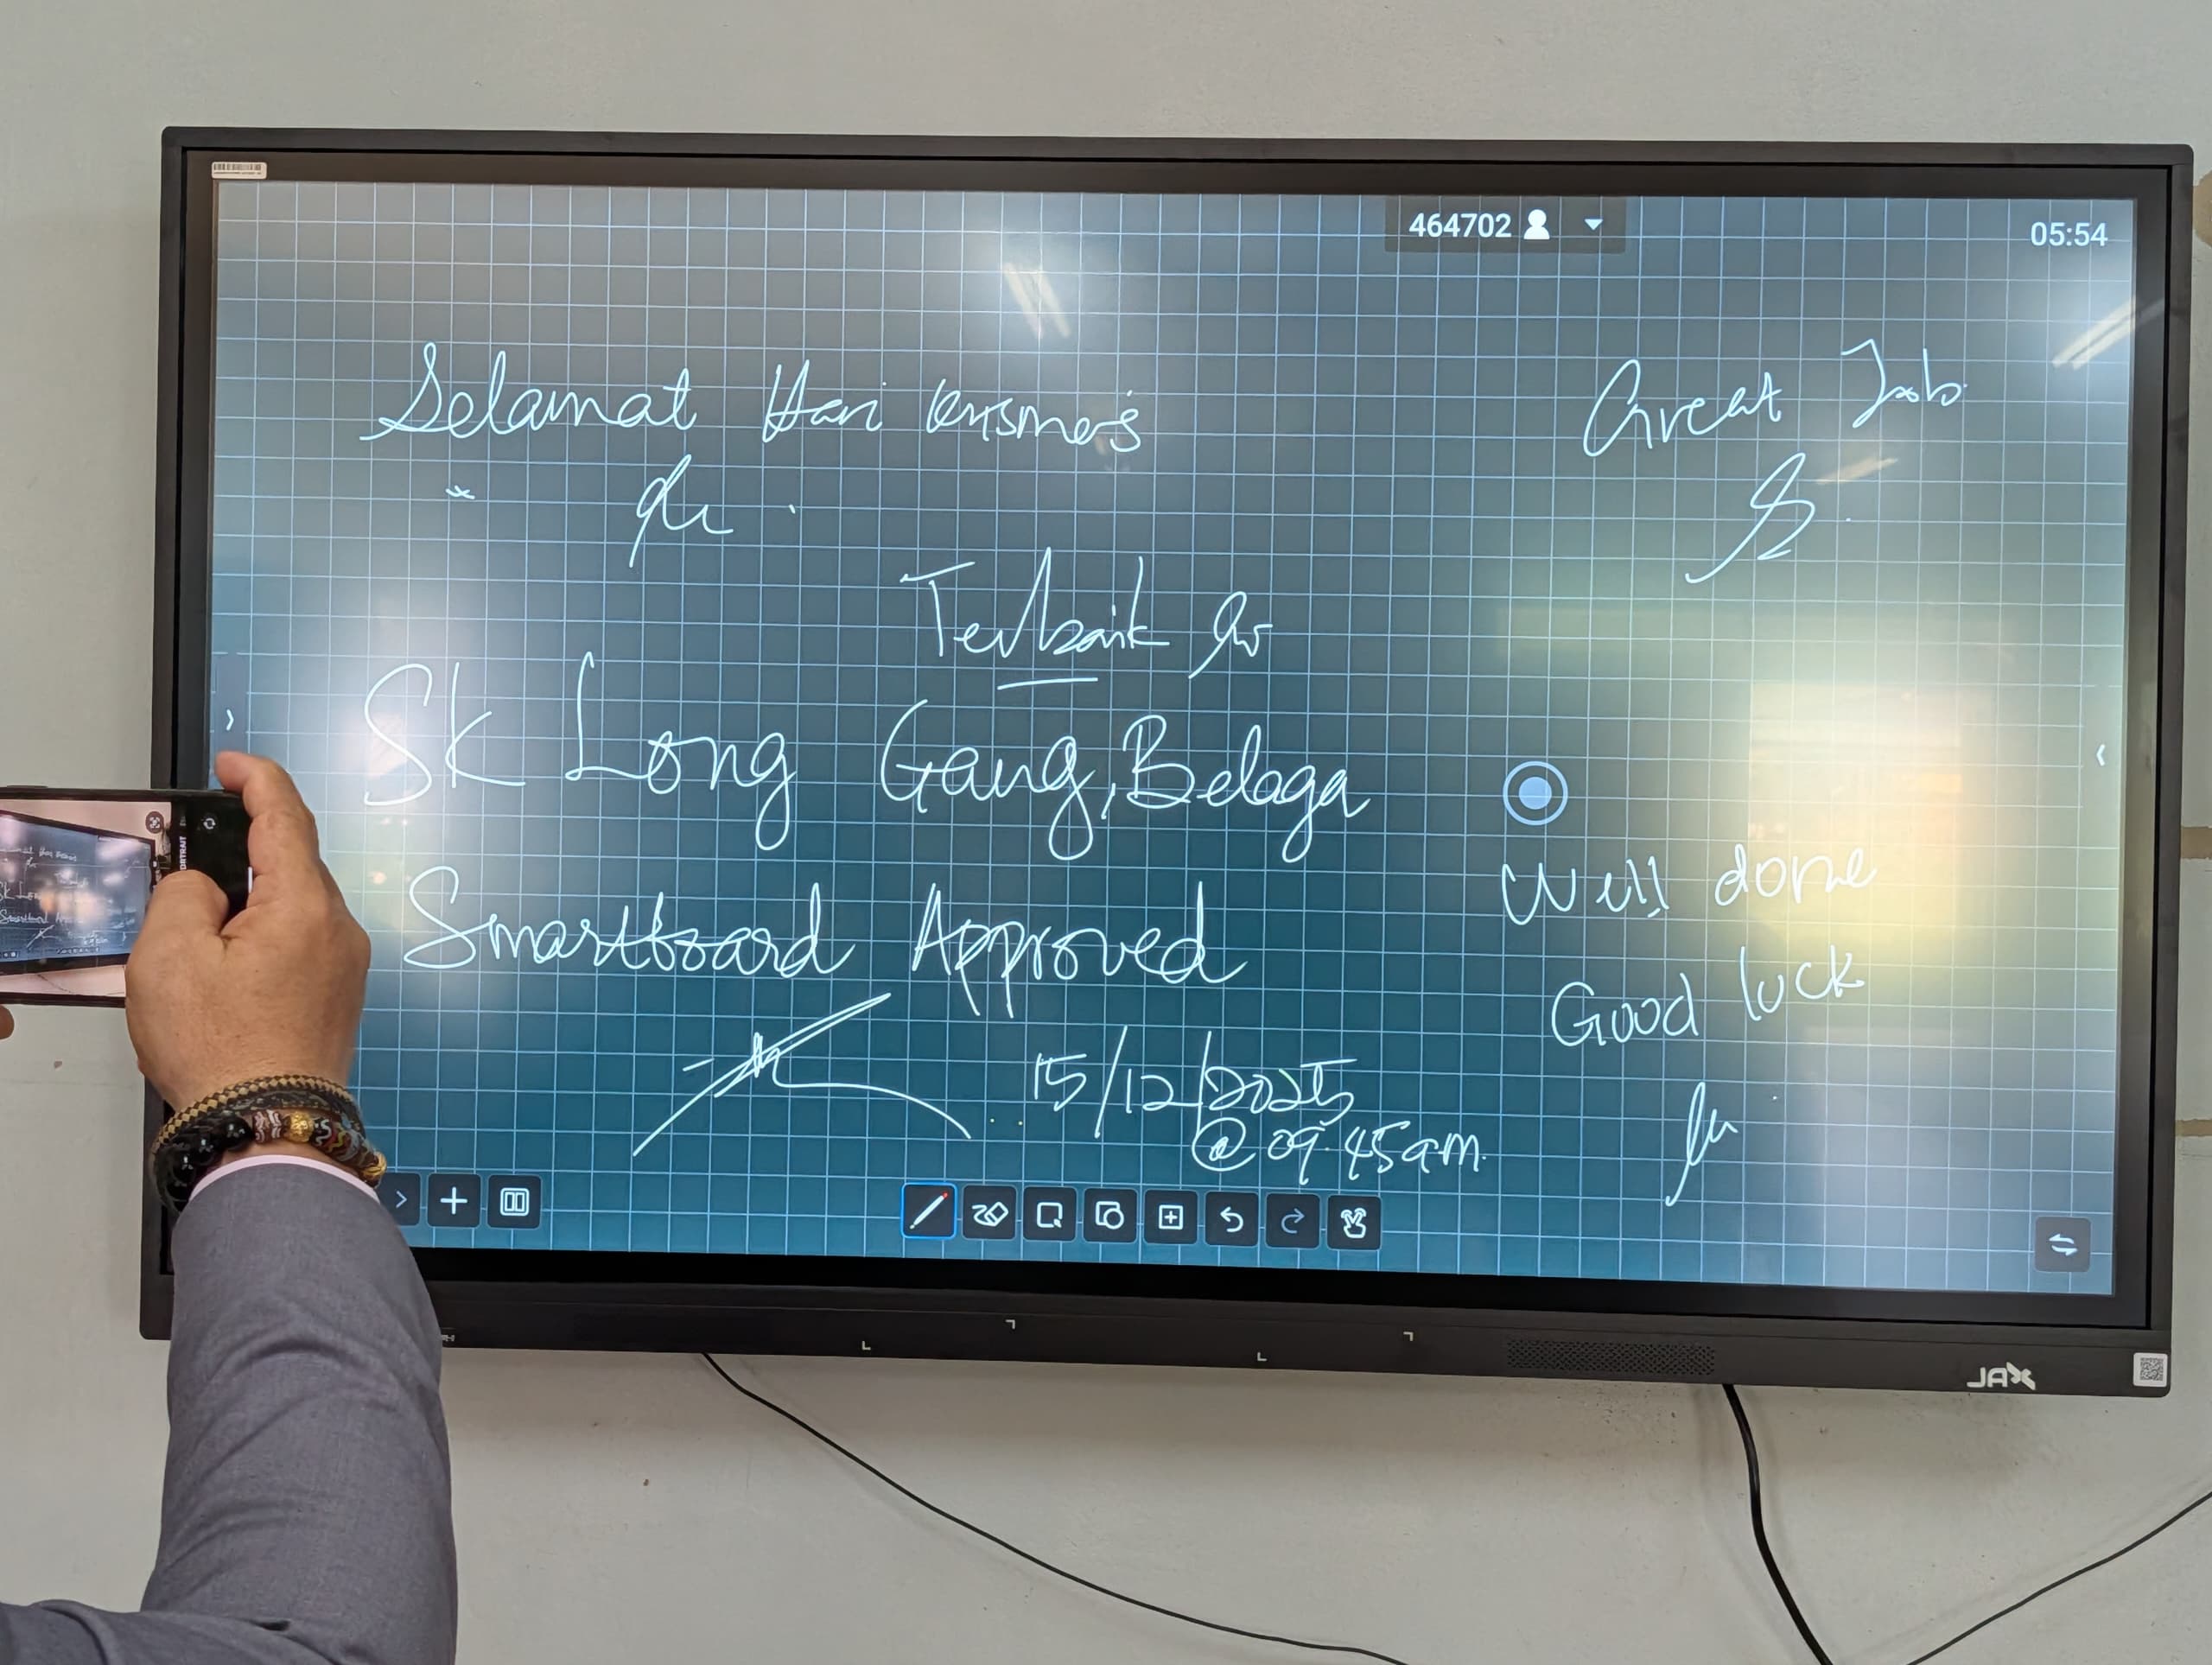 464702
05:54
Selamat Hari Krismas
Great Job
Terbaik
SK Long Gang, Belaga
Smartboard Approved
15/12/2025
@ 09.45am.
Well done
Good luck
JAX